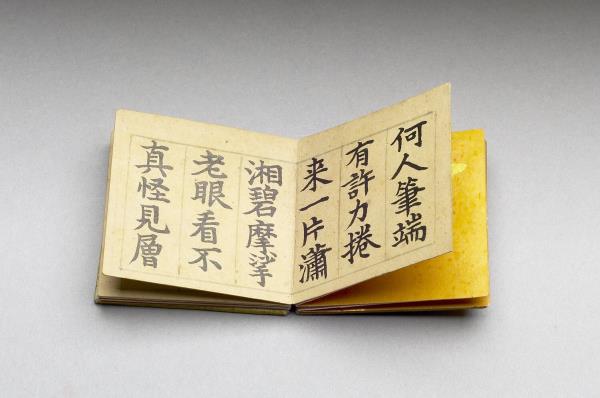 何人筆端
有許力捲
来一片瀟
湘碧摩挲
老眼看不
真怪見層